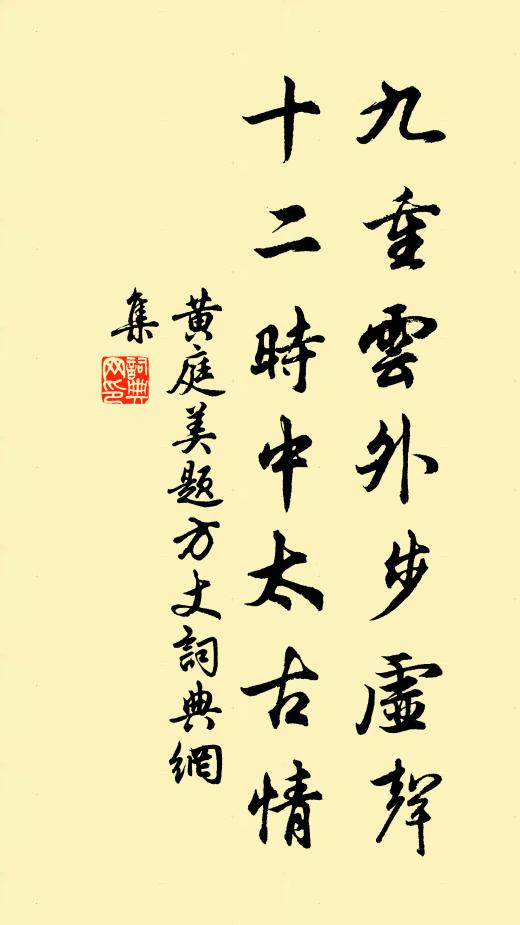 九重雲外步虛聲
十二時中太古情
黄庭美題方丈詞典網
集
詞典
网印